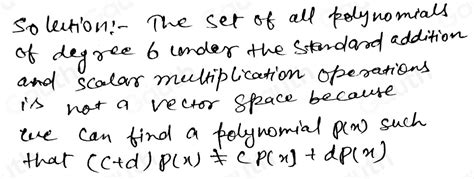 Solution:- The set of all polynomials
of degree 6 under the standard addition
and scalar multiplication operations
is not a vector space because
we can find a polynomial p(x) such
that (c+d) p(x) ≠ c p(x) + dp(x)